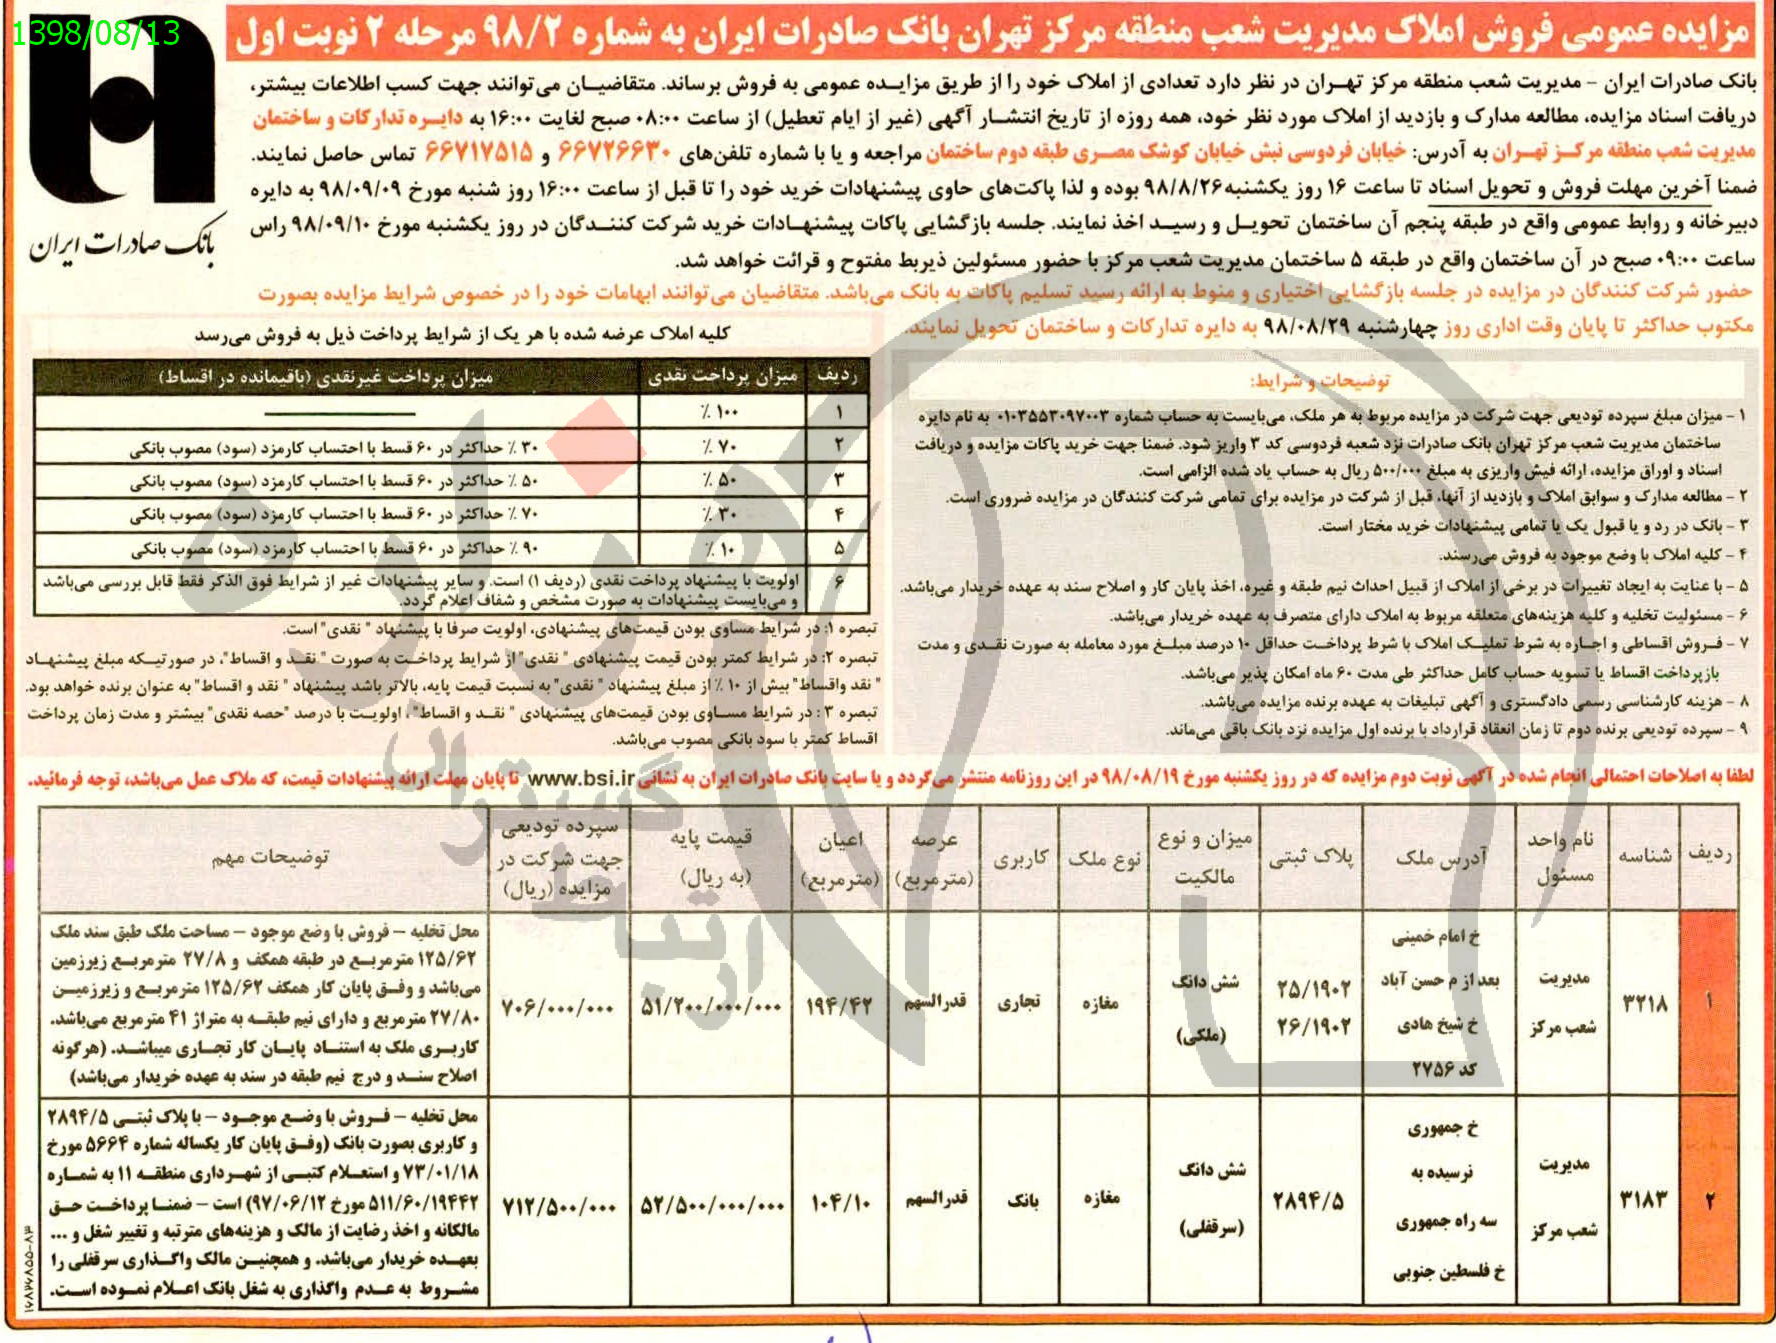 1398/08/13
مزایده عمومی فروش املاک مدیریت شعب منطقه مرکز تهران بانک صادرات ایران به شماره ۹۸/۲ مرحله ۲ نوبت اول
بانک صادرات ایران
بانک صادرات ایران - مدیریت شعب منطقه مرکز تهران در نظر دارد تعدادی از املاک خود را از طریق مزایده عمومی به فروش برساند. متقاضیان می‌توانند جهت کسب اطلاعات بیشتر،
دریافت اسناد مزایده، مطالعه مدارک و بازدید از املاک مورد نظر خود، همه روزه از تاریخ انتشار آگهی (غیر از ایام تعطیل) از ساعت ۰۸:۰۰ صبح لغایت ۱۶:۰۰ به دایره تدارکات و ساختمان
مدیریت شعب منطقه مرکز تهران به آدرس: خیابان فردوسی نبش خیابان کوشک مصری طبقه دوم ساختمان مراجعه و یا با شماره تلفن‌های ۶۶۷۲۶۶۳۰ و ۶۶۷۱۷۵۱۵ تماس حاصل نمایند.
ضمنا آخرین مهلت فروش و تحویل اسناد تا ساعت ۱۶ روز یکشنبه ۹۸/۸/۲۶ بوده و لذا پاکت‌های حاوی پیشنهادات خرید خود را تا قبل از ساعت ۱۶:۰۰ روز شنبه مورخ ۹۸/۰۹/۰۹ به دایره
دبیرخانه و روابط عمومی واقع در طبقه پنجم آن ساختمان تحویل و رسید اخذ نمایند. جلسه بازگشایی پاکات پیشنهادات خرید شرکت کنندگان در روز یکشنبه مورخ ۹۸/۰۹/۱۰ راس
ساعت ۰۹:۰۰ صبح در آن ساختمان واقع در طبقه ۵ ساختمان مدیریت شعب مرکز با حضور مسئولین ذیربط مفتوح و قرائت خواهد شد.
حضور شرکت کنندگان در مزایده در جلسه بازگشایی اختیاری و منوط به ارائه رسید تسلیم پاکات به بانک می‌باشد. متقاضیان می‌توانند ابهامات خود را در خصوص شرایط مزایده بصورت
مکتوب حداکثر تا پایان وقت اداری روز چهارشنبه ۹۸/۰۸/۲۹ به دایره تدارکات و ساختمان تحویل نمایند.
توضیحات و شرایط:
۱ - میزان مبلغ سپرده تودیعی جهت شرکت در مزایده مربوط به هر ملک، می‌بایست به حساب شماره ۰۱۰۳۵۵۳۰۹۷۰۰۳ به نام دایره
ساختمان مدیریت شعب مرکز تهران بانک صادرات نزد شعبه فردوسی کد ۳ واریز شود. ضمنا جهت خرید پاکات مزایده و دریافت
اسناد و اوراق مزایده، ارائه فیش واریزی به مبلغ ۵۰۰/۰۰۰ ریال به حساب یاد شده الزامی است.
۲ - مطالعه مدارک و سوابق املاک و بازدید از آنها، قبل از شرکت در مزایده برای تمامی شرکت کنندگان در مزایده ضروری است.
۳ - بانک در رد و یا قبول یک یا تمامی پیشنهادات خرید مختار است.
۴ - کلیه املاک با وضع موجود به فروش می‌رسند.
۵ - با عنایت به ایجاد تغییرات در برخی از املاک از قبیل احداث نیم طبقه و غیره، اخذ پایان کار و اصلاح سند به عهده خریدار می‌باشد.
۶ - مسئولیت تخلیه و کلیه هزینه‌های متعلقه مربوط به املاک دارای متصرف به عهده خریدار می‌باشد.
۷ - فروش اقساطی و اجاره به شرط تملیک املاک با شرط پرداخت حداقل ۱۰ درصد مبلغ مورد معامله به صورت نقدی و مدت
بازپرداخت اقساط یا تسویه حساب کامل حداکثر طی مدت ۶۰ ماه امکان پذیر می‌باشد.
۸ - هزینه کارشناسی رسمی دادگستری و آگهی تبلیغات به عهده برنده مزایده می‌باشد.
۹ - سپرده تودیعی برنده دوم تا زمان انعقاد قرارداد با برنده اول مزایده نزد بانک باقی می‌ماند.
کلیه املاک عرضه شده با هر یک از شرایط پرداخت ذیل به فروش می‌رسد
ردیف میزان پرداخت نقدی میزان پرداخت غیرنقدی (باقیمانده در اقساط)
۱ ۱۰۰ ٪ ————
۲ ۷۰ ٪ ۳۰ ٪ حداکثر در ۶۰ قسط با احتساب کارمزد (سود) مصوب بانکی
۳ ۵۰ ٪ ۵۰ ٪ حداکثر در ۶۰ قسط با احتساب کارمزد (سود) مصوب بانکی
۴ ۳۰ ٪ ۷۰ ٪ حداکثر در ۶۰ قسط با احتساب کارمزد (سود) مصوب بانکی
۵ ۱۰ ٪ ۹۰ ٪ حداکثر در ۶۰ قسط با احتساب کارمزد (سود) مصوب بانکی
۶ اولویت با پیشنهاد پرداخت نقدی (ردیف ۱) است. و سایر پیشنهادات غیر از شرایط فوق الذکر فقط قابل بررسی می‌باشد
و می‌بایست پیشنهادات به صورت مشخص و شفاف اعلام گردد.
تبصره ۱: در شرایط مساوی بودن قیمت‌های پیشنهادی، اولویت صرفا با پیشنهاد " نقدی" است.
تبصره ۲: در شرایط کمتر بودن قیمت پیشنهادی " نقدی" از شرایط پرداخت به صورت " نقد و اقساط"، در صورتیکه مبلغ پیشنهاد
" نقد واقساط" بیش از ۱۰ ٪ از مبلغ پیشنهاد " نقدی" به نسبت قیمت پایه، بالاتر باشد پیشنهاد " نقد و اقساط" به عنوان برنده خواهد بود.
تبصره ۳ : در شرایط مساوی بودن قیمت‌های پیشنهادی " نقد و اقساط" ، اولویت با درصد "حصه نقدی" بیشتر و مدت زمان پرداخت
اقساط کمتر با سود بانکی مصوب می‌باشد.
لطفا به اصلاحات احتمالی انجام شده در آگهی نوبت دوم مزایده که در روز یکشنبه مورخ ۹۸/۰۸/۱۹ در این روزنامه منتشر می‌گردد و یا سایت بانک صادرات ایران به نشانی www.bsi.ir تا پایان مهلت ارائه پیشنهادات قیمت، که ملاک عمل می‌باشد، توجه فرمائید.
ردیف شناسه نام واحد مسئول آدرس ملک پلاک ثبتی میزان و نوع مالکیت نوع ملک کاربری عرصه (مترمربع) اعیان (مترمربع) قیمت پایه (به ریال) سپرده تودیعی جهت شرکت در مزایده (ریال) توضیحات مهم
۱ ۳۲۱۸ مدیریت شعب مرکز خ امام خمینی بعد از م حسن آباد خ شیخ هادی کد ۲۷۵۶ ۲۵/۱۹۰۲ ۲۶/۱۹۰۲ شش دانگ (ملکی) مغازه تجاری قدرالسهم ۱۹۴/۴۲ ۵۱/۲۰۰/۰۰۰/۰۰۰ ۷۰۶/۰۰۰/۰۰۰
محل تخلیه - فروش با وضع موجود - مساحت ملک طبق سند ملک
۱۲۵/۶۲ مترمربع در طبقه همکف و ۲۷/۸ مترمربع زیرزمین
می‌باشد و وفق پایان کار همکف ۱۲۵/۶۲ مترمربع و زیرزمین
۲۷/۸۰ مترمربع و دارای نیم طبقه به متراژ ۴۱ مترمربع می‌باشد.
کاربری ملک به استناد پایان کار تجاری میباشد. (هرگونه
اصلاح سند و درج نیم طبقه در سند به عهده خریدار می‌باشد)
۲ ۳۱۸۳ مدیریت شعب مرکز خ جمهوری نرسیده به سه راه جمهوری خ فلسطین جنوبی ۲۸۹۴/۵ شش دانگ (سرقفلی) مغازه بانک قدرالسهم ۱۰۴/۱۰ ۵۲/۵۰۰/۰۰۰/۰۰۰ ۷۱۲/۵۰۰/۰۰۰
محل تخلیه - فروش با وضع موجود - با پلاک ثبتی ۲۸۹۴/۵
و کاربری بصورت بانک (وفق پایان کار یکساله شماره ۵۶۶۴ مورخ
۷۳/۰۱/۱۸ و استعلام کتبی از شهرداری منطقه ۱۱ به شماره
۵۱۱/۶۰/۱۹۴۴۲ مورخ ۹۷/۰۶/۱۲) است - ضمنا پرداخت حق
مالکانه و اخذ رضایت از مالک و هزینه‌های مترتبه و تغییر شغل و ...
بعهده خریدار می‌باشد. و همچنین مالک واگذاری سرقفلی را
مشروط به عدم واگذاری به شغل بانک اعلام نموده است.
هزاره
ارتباط
گستران